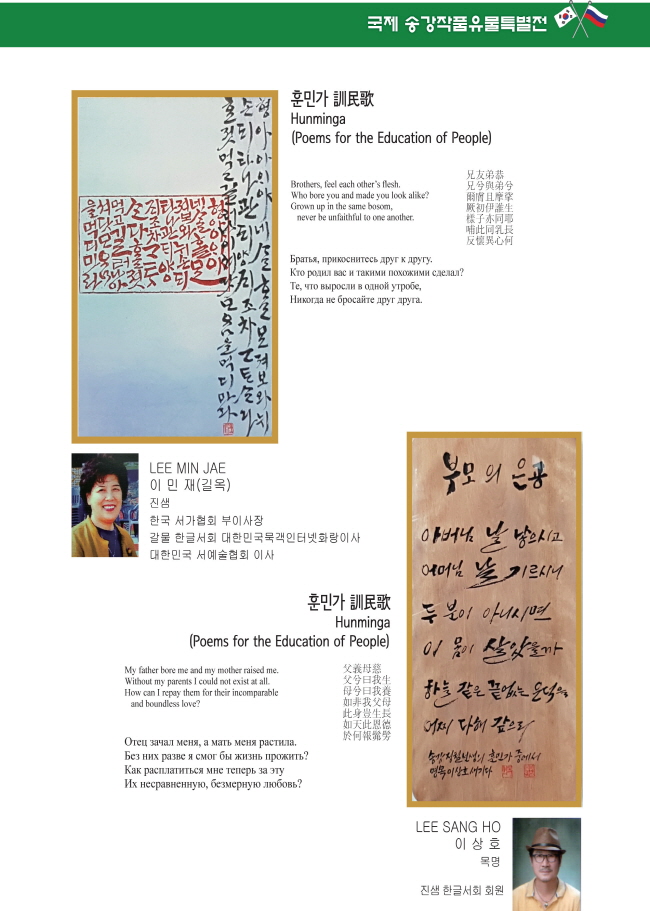 국제 송강작품유물특별전
형아아이야네살흘ᄆᆞᆫ져보와뉘
훈민가 訓民歌
Hunminga
(Poems for the Education of People)
Brothers, feel each other's flesh.
Who bore you and made you look alike?
Grown up in the same bosom,
never be unfaithful to one another.
兄友弟恭
兄兮與弟兮
爾膚且摩挲
厥初伊誰生
樣子亦同耶
哺此同乳長
反懷異心何
Братья, прикоснитесь друг к другу.
Кто родил вас и такими похожими сделал?
Те, что выросли в одной утробе,
Никогда не бросайте друг друга.
LEE MIN JAE
이 민 재(길옥)
진샘
한국 서가협회 부이사장
갈물 한글서회 대한민국묵객인터넷화랑이사
대한민국 서예술협회 이사
훈민가 訓民歌
Hunminga
(Poems for the Education of People)
My father bore me and my mother raised me.
Without my parents I could not exist at all.
How can I repay them for their incomparable
and boundless love?
父義母慈
父兮曰我生
母兮曰我養
如非我父母
此身豈生長
如天此恩德
於何報
Отец зачал меня, а мать меня растила.
Без них разве я смог бы жизнь прожить?
Как расплатиться мне теперь за эту
Их несравненную, безмерную любовь?
부모의 은공
아버님 날 낳으시고
어머님 날 기르시니
두 분이 아니시면
이 몸이 살았을까
하늘 같은 끝없는 은덕을
어찌 다해 갚으리
송강정철선생의 훈민가 중에서
영목이상호새기다
LEE SANG HO
이 상 호
목명
진샘 한글서회 회원